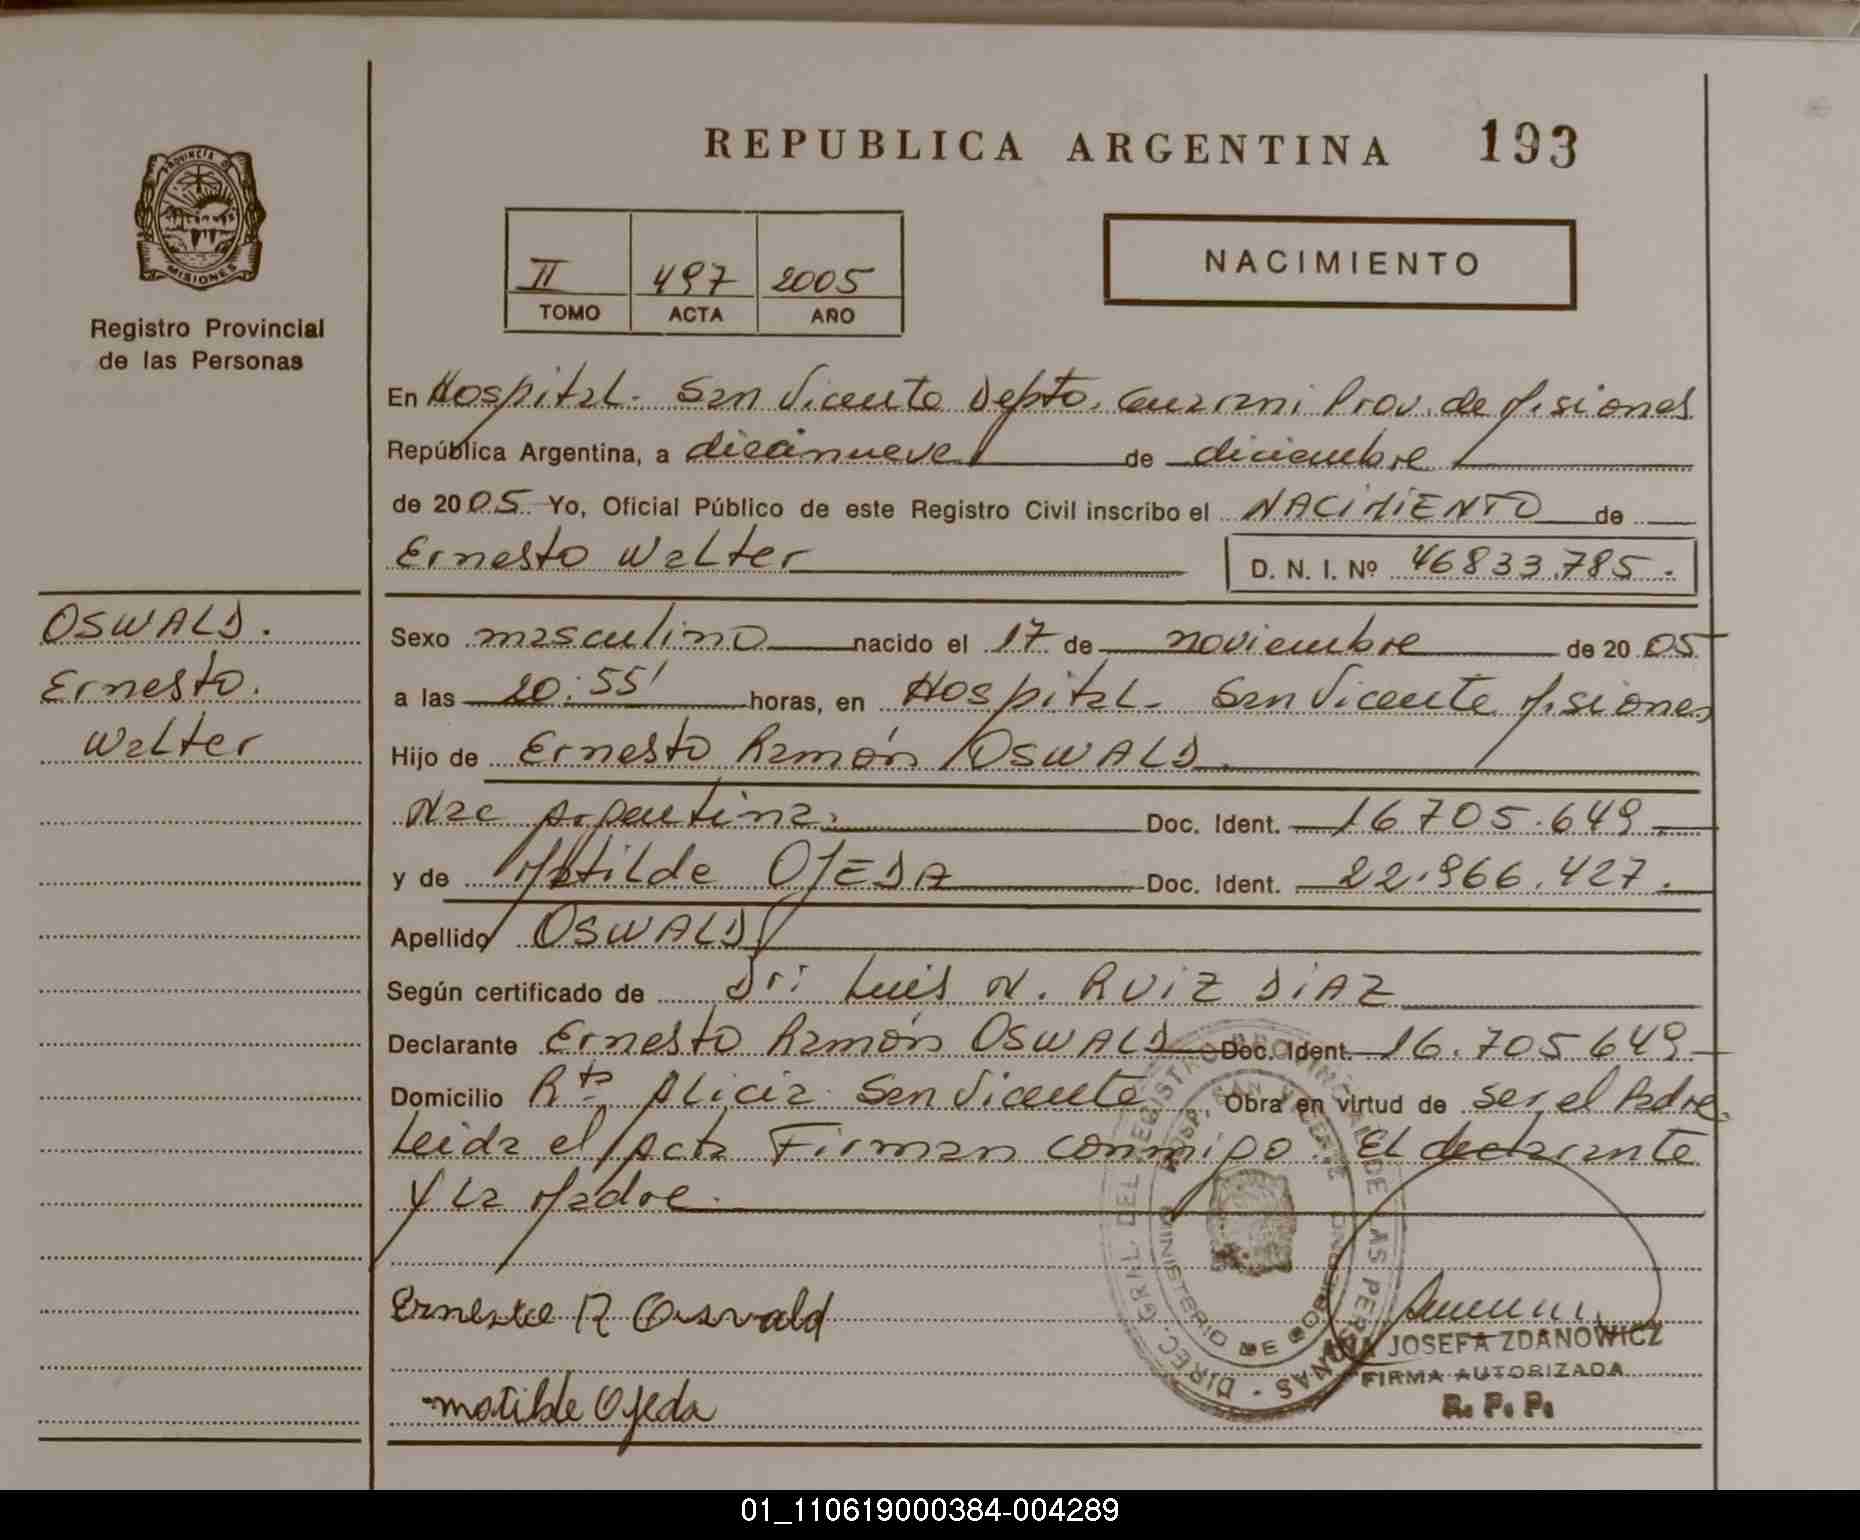 REPUBLICA ARGENTINA 193
PROVINCIA DE
MISIONES
Registro Provincial
de las Personas
II 497 2005
TOMO ACTA AÑO
NACIMIENTO
En Hospital. San Vicente Depto. Guarani Prov. de Misiones
República Argentina, a diecinueve de diciembre
de 2005 Yo, Oficial Público de este Registro Civil inscribo el NACIMIENTO de
Ernesto Walter D. N. I. Nº 46833.785.
OSWALD.
Ernesto.
Walter
Sexo masculino nacido el 17 de noviembre de 2005
a las 20:55' horas, en Hospital- San Vicente Misiones
Hijo de Ernesto Ramón OSWALD
Nac Argentina. Doc. Ident. 16.705.649
y de Matilde OJEDA Doc. Ident. 22.966.427.
Apellido OSWALD
Según certificado de Dr: Luis N. RUIZ DIAZ
Declarante Ernesto Ramón OSWALD Doc. Ident. 16.705.649
Domicilio Rta Alicia San Vicente, Obra en virtud de ser el Padre.
Leida el Acta Firman conmigo. El declarante
y La Madre.
Ernesto R Osvald
Matilde Ojeda
DIREC. GRAL. DEL REGISTRO PROVINCIAL DE LAS PERSONAS
HOSP. SAN VICENTE
MINISTERIO DE GOBIERNO
JOSEFA ZDANOWICZ
FIRMA AUTORIZADA
R. P. P.
01_110619000384-004289